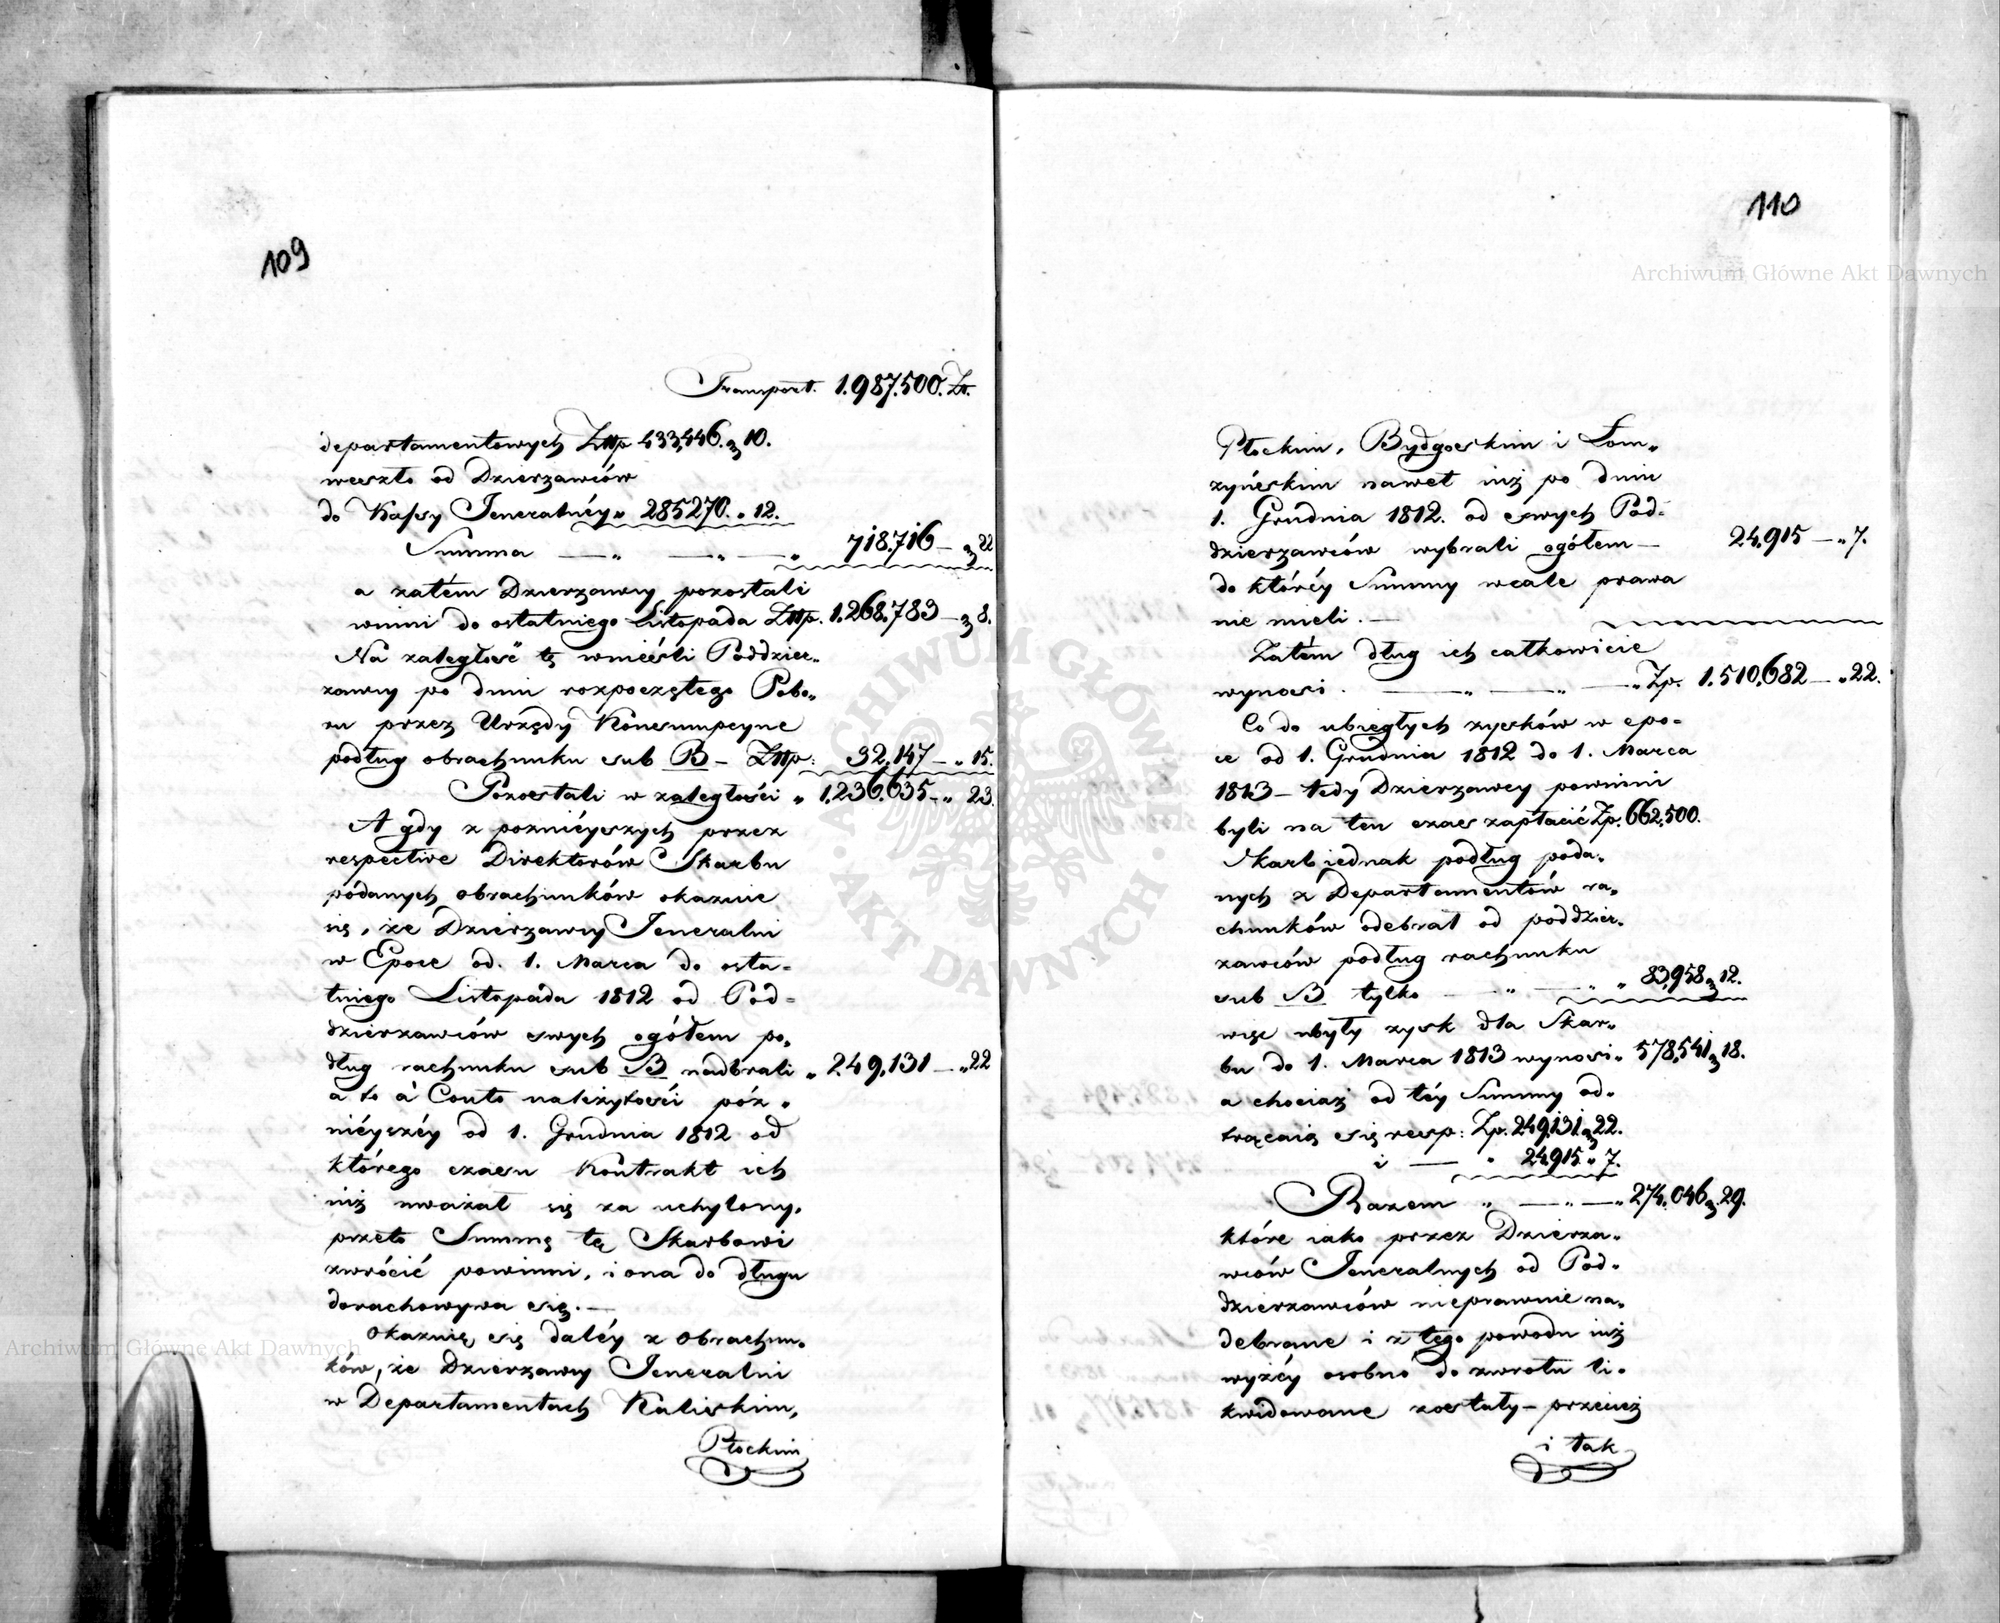 109
Transport. 1.987.500. Zł.
departamentowych Złtp 433,446. g 10.
weszło od Dzierzawców
do Kassy Jeneralnéy „ 285270. „ 12.
Summa — „ — „ — „ 718.716 — g 22
a zatém Dzierzawcy pozostali
winni do ostatniego Listopada Złtp. 1.268.783 — g 8.
Na zaległość tę wnieśli Poddzier„
zawcy po dniu rozpoczętego Pobo„
ru przez Urzędy Konsumpcyne
podług obrachunku sub B — Złtp: 32,147 — „ 15.
Pozostali w zaległości „ 1.236.635 — „ 23.
A gdy z poznieyszych przez
respective Direktorów Skarbu
podanych obrachunków okazuie
się, że Dzierzawcy Jeneralni
w Epoce od. 1. Marca do osta=
tniego Listopada 1812 od Pod=
dzierzawców swych ogółem po„
dług rachunku sub B nadbrali „ 249,131 — „ 22
a to à Conto należytości póz„
niéyszéy od 1. Grudnia 1812 od
którego czasu Kontrakt ich
iuż uważał się za uchylony,
przeto Summę tę Skarbowi
zwrócić powinni, i ona do długu
dorachowywa się. —
Okazuię się daléy z Obrachun„
ków, że Dzierzawcy Jeneralni
w Departamentach Kaliskim,
Płockim
110
Płockim, Bydgoskim i Łom„
żyńskim nawet iuż po dniu
1. Grudnia 1812. od swych Pod=
dzierzawców wybrali ogółem — 24.915 — „ 7.
do któréy Summy wcale prawa
nie mieli. —
Zatém dług ich całkowicie
wynosi . — „ — „ — „ Zp. 1.510,682 — „ 22.
Co do ubiegłych zysków w epo=
ce od 1. Grudnia 1812 do 1. Marca
1813 — tedy Dzierzawcy powinni
byli na ten czas zapłacić Zp. 662,500.
Skarb iednak podług poda„
nych z Departamentów ra„
chunków odebrał od poddzier„
zawców podług rachunku
sub B tylko — „ — „ „ 83,958 g 12.
więc ubyły zysk dla Skar„
bu do 1. Marca 1813 wynosi „ 578,541 g 18.
a chociaż od téy Summy od„
trącaią się resp: Zp. 249,131 g 22.
i — „ 24,915 „ 7.
Razem „ — „ — „ 274.046 g. 29.
które iako przez Dzierza„
wców Jeneralnych od Pod„
dzierzawców nieprawnie na„
debrane i z tego powodu iuż
wyżéy osobno do zwrotu li„
kwidowane zostały — przecież
i tak
ARCHIWUM GŁÓWNE AKT DAWNYCH
Archiwum Główne Akt Dawnych
Archiwum Główne Akt Dawnych